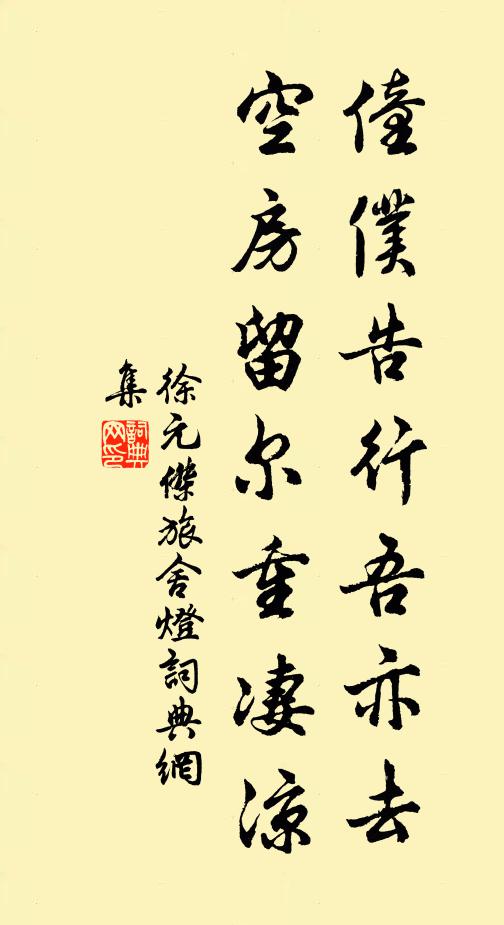 僮僕告行吾亦去
空房留尔重凄涼
徐元傑旅舍燈詞典網
集
詞典网印